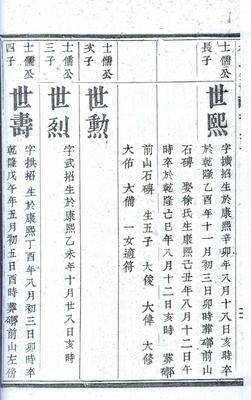 士儒公
長子
世熙
字擴招生於康熙辛卯年八月十
於乾隆乙酉年十一月初三日卯時葬鄉前山
石磚 娶徐氏生康熙己丑年八月十二日午
時卒於乾隆己巳年八月十二日亥時 葬鄉
前山石磚 生五子 大俊 大偉 大修
大佑 大備 一女適符
士儒公
次子
世勳
士儒公
三子
世烈
字武招生於康熙乙未年十月廿八日亥時
士儒公
四子
世壽
字拱招生於康熙丁酉年八月初三日卯時卒
乾隆戊午年五月初五日酉時葬鄉前山左傍